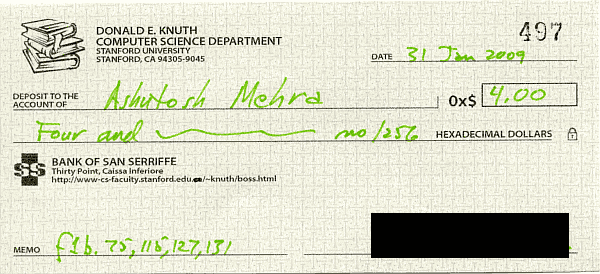 DONALD E. KNUTH
COMPUTER SCIENCE DEPARTMENT
STANFORD UNIVERSITY
STANFORD, CA 94305-9045
497
DATE 31 Jan 2009
DEPOSIT TO THE
ACCOUNT OF Ashutosh Mehra 0x$ 4.00
Four and no/256 HEXADECIMAL DOLLARS
$$ BANK OF SAN SERRIFFE
Thirty Point, Caissa Inferiore
http://www-cs-faculty.stanford.edu/~knuth/boss.html
MEMO f1b. 75, 115, 127, 131